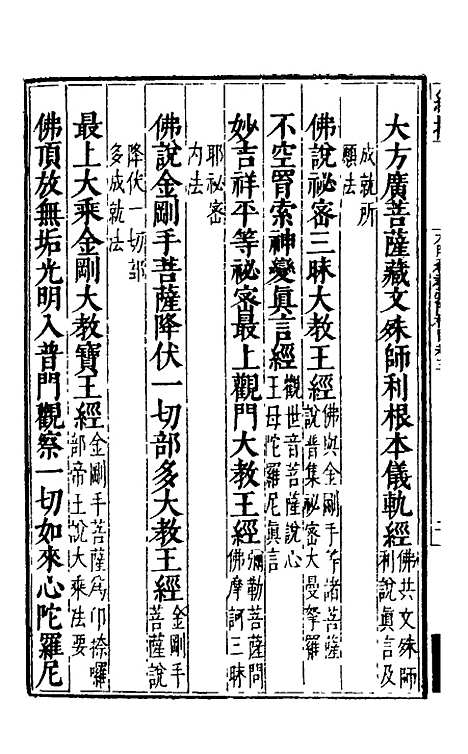 大方廣菩薩藏文殊師利根本儀軌經佛共文殊師利說眞言及
成就所願法
佛說祕密三昧大教王經佛與金剛手等諸菩薩說普集祕密大曼拏羅
不空罥索神變眞言經觀世音菩薩說心王母陀羅尼眞言
妙吉祥平等祕密最上觀門大教王經彌勒菩薩問佛摩訶三昧
耶祕密內法
佛說金剛手菩薩降伏一切部多大教王經金剛手菩薩說
降伏一切部多成就法
最上大乘金剛大教寶王經金剛手菩薩為印捺囉部帝王說大乘法要
佛頂放無垢光明入普門觀察一切如來心陀羅尼